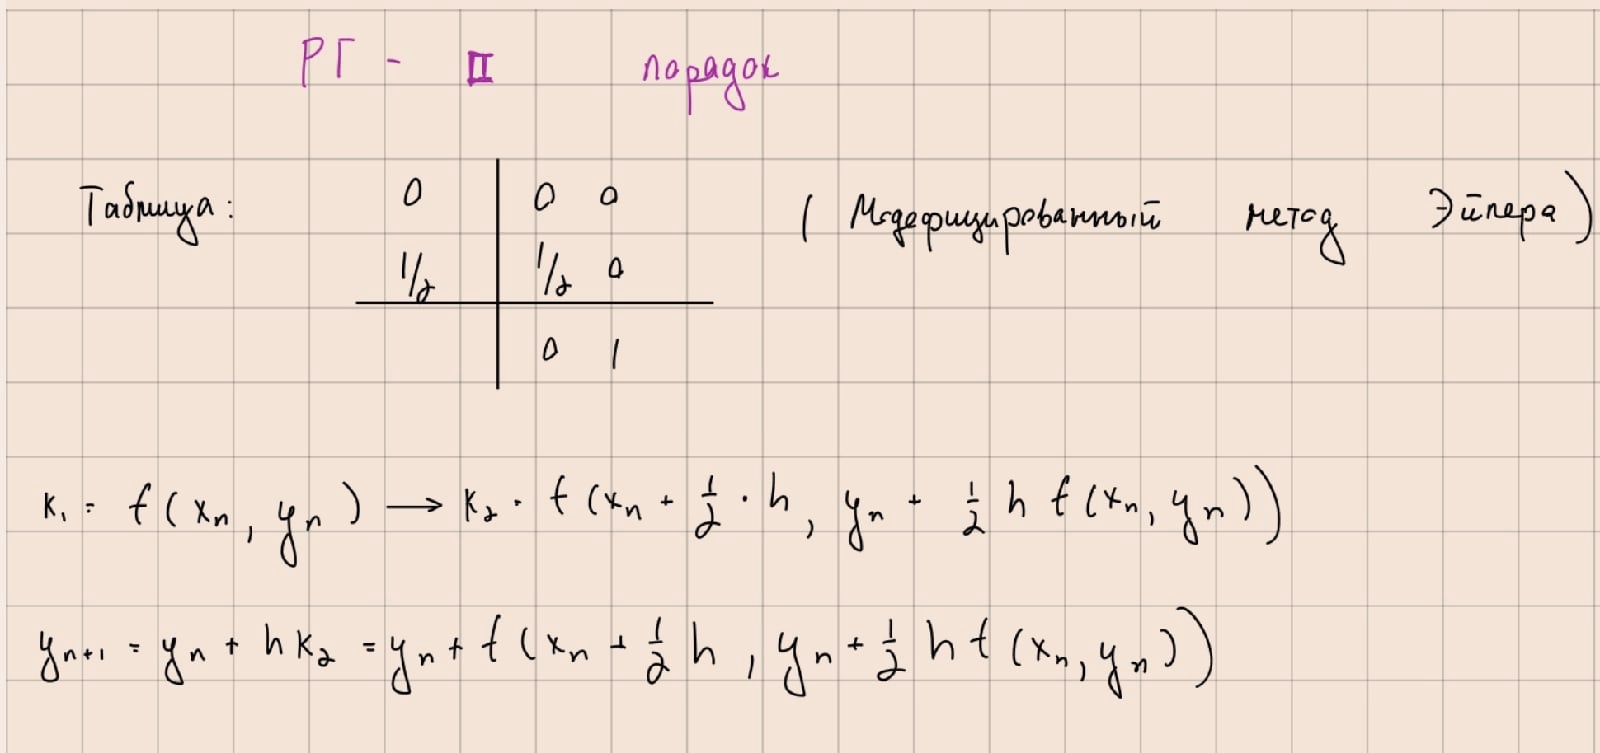 РГ - II порядок
Таблица:
0 | 0 0
1/2 | 1/2 0
0 1
(Модефицированный метод Эйлера)
K₁ = f(xₙ, yₙ) → K₂ = f(xₙ + 1/2 · h, yₙ + 1/2 h f(xₙ, yₙ))
yₙ₊₁ = yₙ + h K₂ = yₙ + f(xₙ + 1/2 h, yₙ + 1/2 h f(xₙ, yₙ))